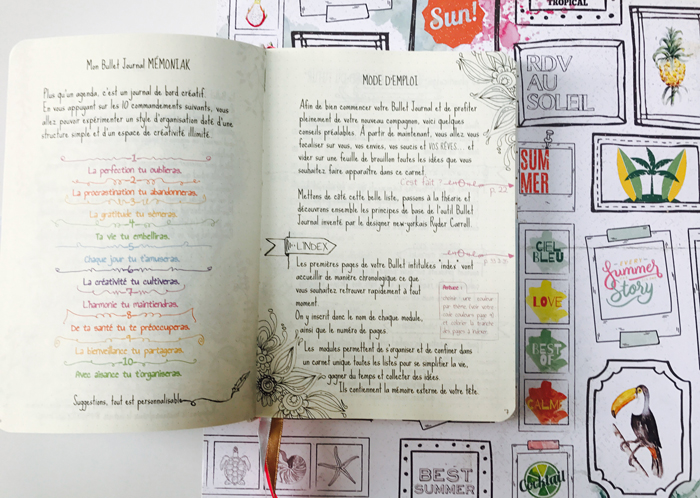 Mon Bullet Journal MÉMONIAK
Plus qu'un agenda, c'est un journal de bord créatif.
En vous appuyant sur les 10 commandements suivants, vous
allez pouvoir expérimenter un style d'organisation doté d'une
structure simple et d'un espace de créativité illimité.
1
La perfection tu oublieras.
2
La procrastination tu abandonneras.
3
La gratitude tu sèmeras.
4
Ta vie tu embelliras.
5
Chaque jour tu t'amuseras.
6
La créativité tu cultiveras.
7
L'harmonie tu maintiendras.
8
De ta santé tu te préoccuperas.
9
La bienveillance tu partageras.
10
Avec aisance tu t'organiseras.
Suggestions, tout est personnalisable
MODE D'EMPLOI
Afin de bien commencer votre Bullet Journal et de profiter
pleinement de votre nouveau compagnon, voici quelques
conseils préalables. À partir de maintenant, vous allez vous
focaliser sur vous, vos envies, vos soucis et VOS RÊVES... et
vider sur une feuille de brouillon toutes les idées que vous
souhaitez faire apparaître dans ce carnet.
C'est fait ?
p. 22
Mettons de côté cette belle liste, passons à la théorie et
découvrons ensemble les principes de base de l'outil Bullet
Journal inventé par le designer new-yorkais Ryder Carroll.
L'INDEX
Les premières pages de votre Bullet intitulées "index" vont
accueillir de manière chronologique ce que
vous souhaitez retrouver rapidement à tout
moment.
On y inscrit donc le nom de chaque module,
ainsi que le numéro de pages.
Astuce :
choisir une couleur
par thème
et colorier la tranche
des pages
Les modules permettent de s'organiser et de confiner dans
un carnet unique toutes les listes pour se simplifier la vie,
gagner du temps et collecter des idées.
Ils contiennent la mémoire externe de votre tête.
Sun!
TROPICAL
RDV
AU
SOLEIL
SUM
MER
CIEL
BLEU
LOVE
BEST
OF
CALME
Summer
Story
BEST
SUMMER
Cocktail